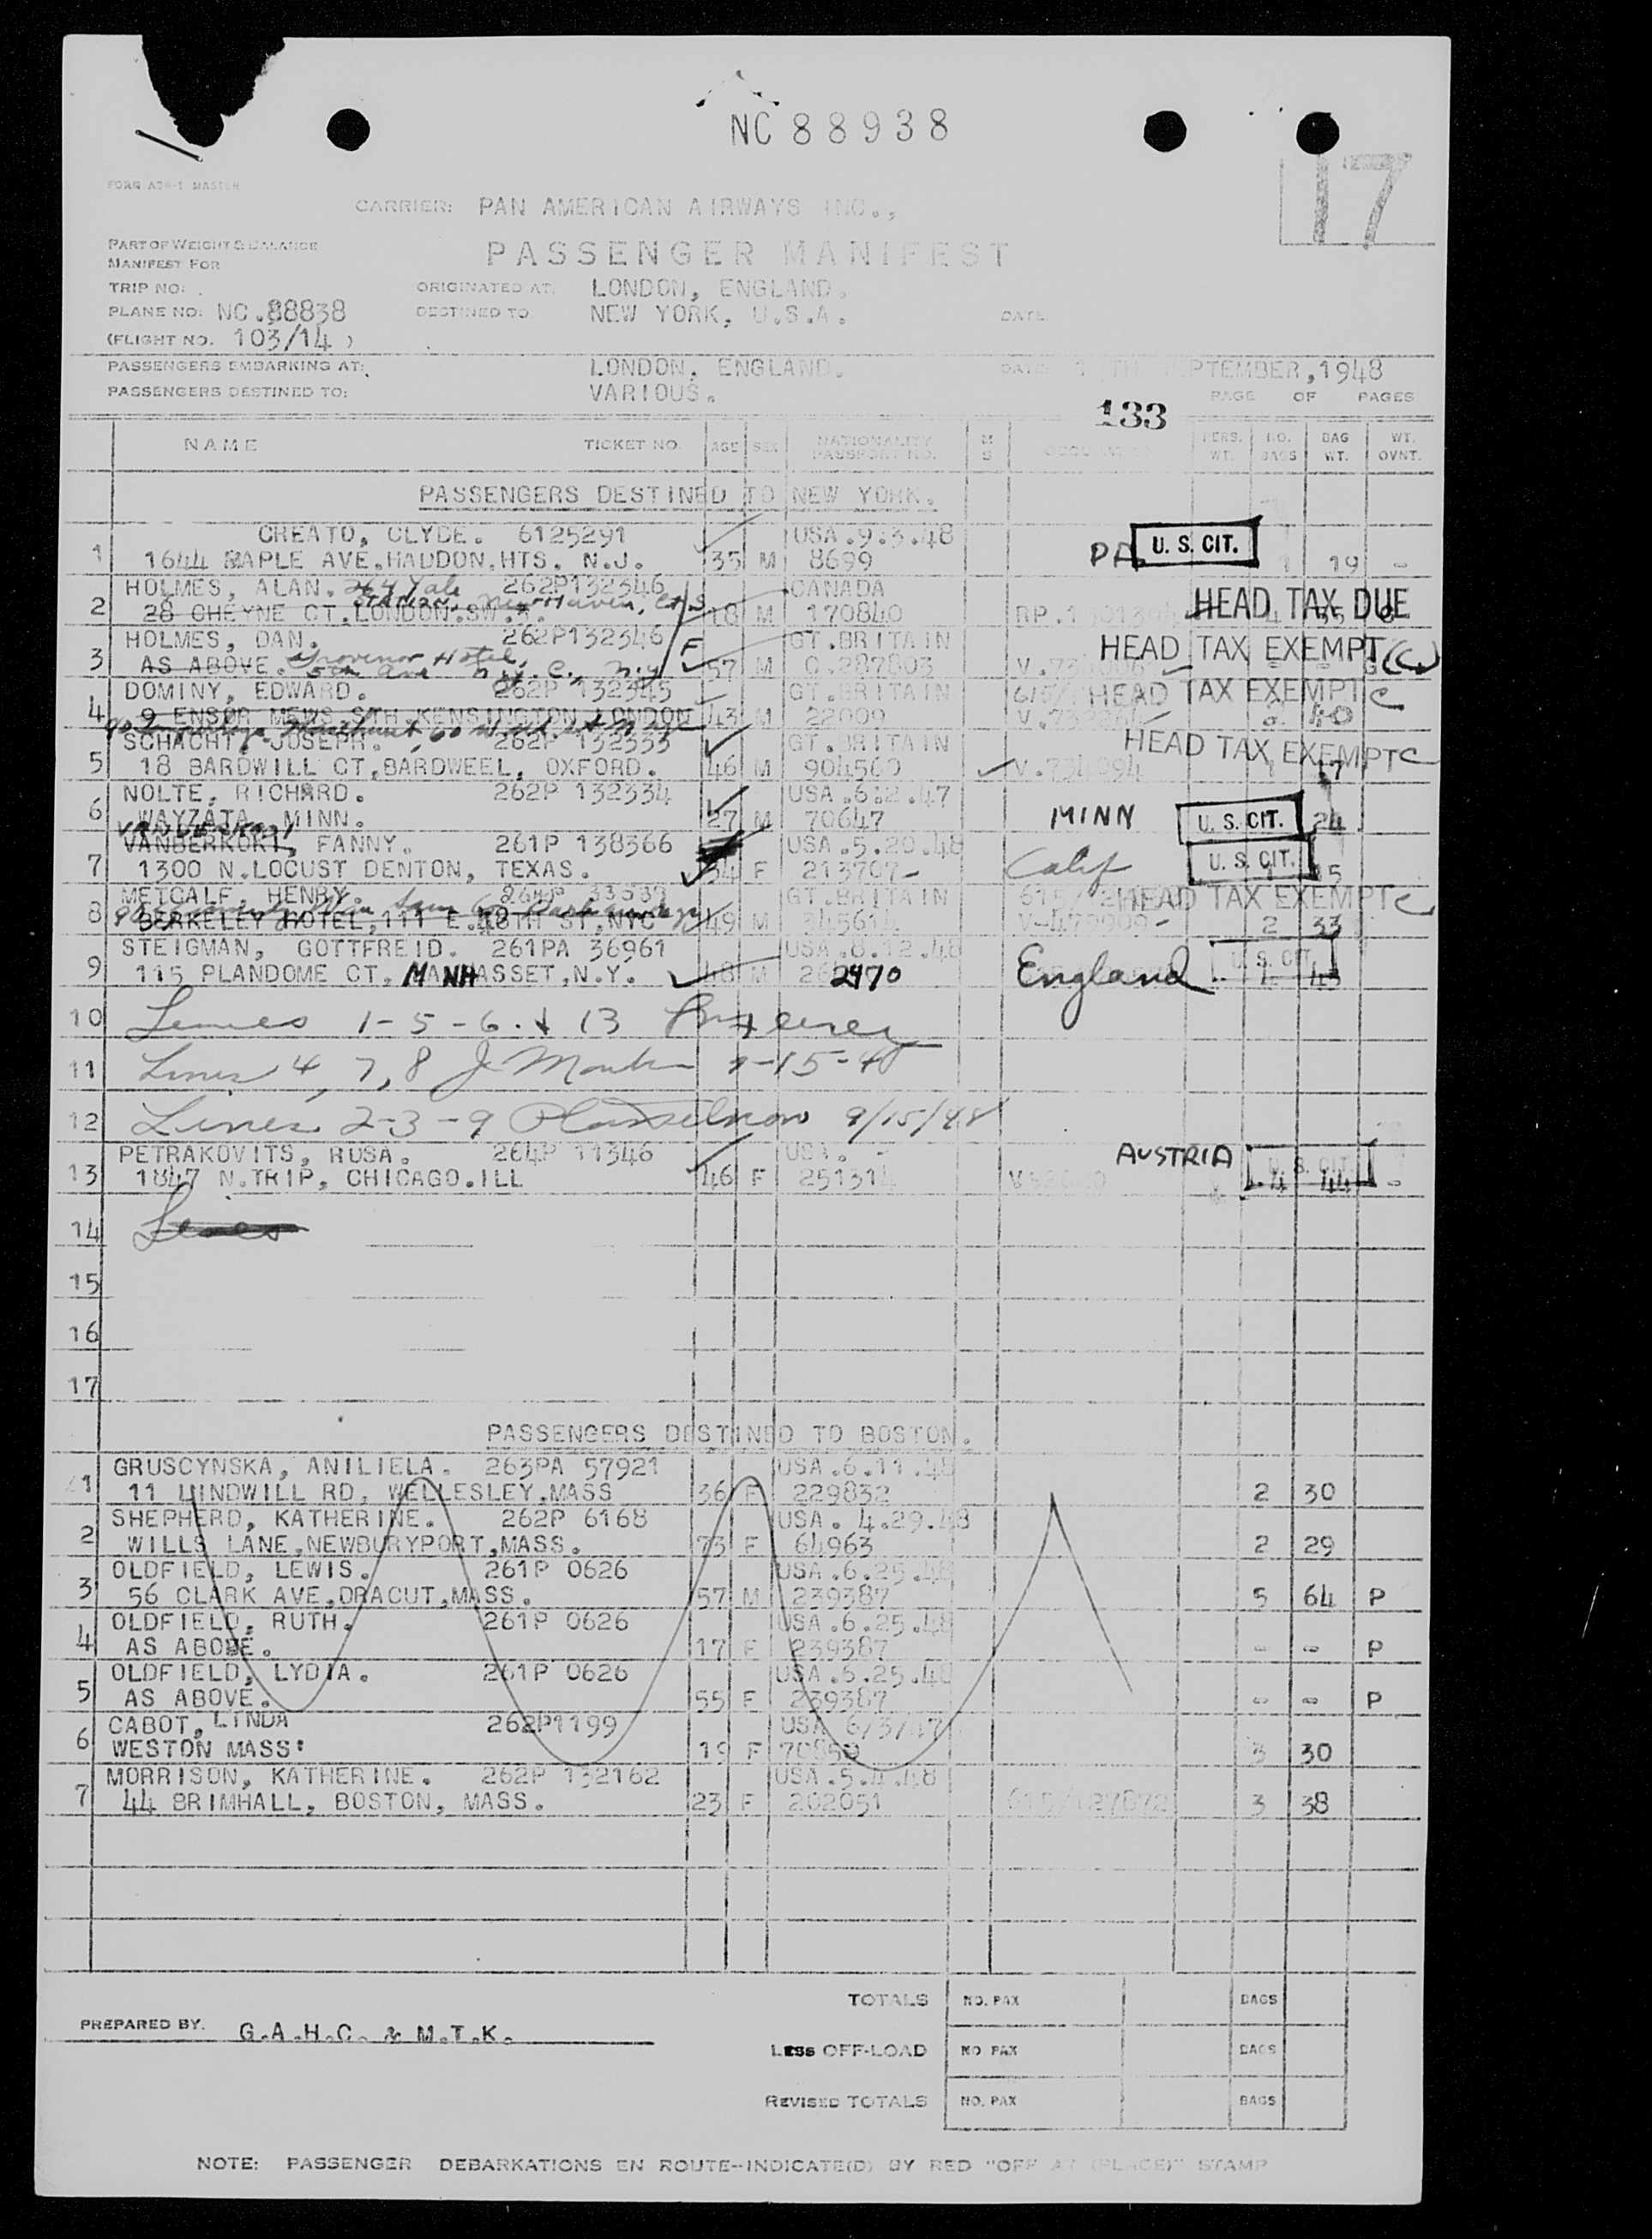 NC 88938
17
FORM ATR-1 MASTER
CARRIER: PAN AMERICAN AIRWAYS INC.,
PART OF WEIGHT & BALANCE
MANIFEST FOR
PASSENGER MANIFEST
TRIP NO: . ORIGINATED AT. LONDON, ENGLAND.
PLANE NO: NC.88838 DESTINED TO NEW YORK, U.S.A. DATE
(FLIGHT NO. 103/14 )
PASSENGERS EMBARKING AT: LONDON, ENGLAND. DATE 1 TH SEPTEMBER,1948
PASSENGERS DESTINED TO: VARIOUS. PAGE OF PAGES
133
NAME TICKET NO. AGE SEX NATIONALITY PASSPORT NO. M S PERS. WT. NO. BAGS BAG WT. WT. OVNT.
PASSENGERS DESTINED TO NEW YORK.
CREATO, CLYDE. 6125291 USA.9.3.48
1 1644 MAPLE AVE.HADDON.HTS. N.J. 35 M 8699 PA U. S. CIT. 1 19 -
HOLMES, ALAN. 264 Yale 262P132346 CANADA
2 28 CHEYNE CT.LONDON.SW.3. Station, New Haven, 18 M 170840 HEAD TAX DUE
HOLMES, DAN. 262P132346 F GT.BRITAIN HEAD TAX EXEMPT (C)
3 AS ABOVE. Grovenor Hotel, 5th Ave N.Y.C., N.Y. 57 M 0.287803
DOMINY, EDWARD. 262P 132345 GT.BRITAIN HEAD TAX EXEMPT C
4 9 ENSOR MEWS STH KENSINGTON LONDON 43 M 22009 40
SCHACHT, JOSEPH. 262P 132333 GT.BRITAIN HEAD TAX EXEMPT C
5 18 BARDWILL CT,BARDWEEL, OXFORD. 46 M 904560 V.734994 1 17
NOLTE, RICHARD. 262P 132334 USA.6.2.47
6 WAYZATA, MINN. 27 M 70647 MINN U. S. CIT. 24
VANBERKOKI, FANNY. 261P 138366 USA.5.20.48
7 1300 N.LOCUST DENTON, TEXAS. 34 F 213707 Calif U. S. CIT. 5
METCALF, HENRY. GT.BRITAIN HEAD TAX EXEMPT C
8 BERKELEY HOTEL,111 E.48TH ST,NYC 49 M 345614 2 33
STEIGMAN, GOTTFREID. 261PA 36961 USA.8.12.48
9 115 PLANDOME CT. MANHASSET,N.Y. 48 M 262470 England U. S. CIT. 1 43
10 Lines 1-5-6. & 13
11 Lines 4, 7, 8 9-15-48
12 Lines 2-3-9 9/15/48
PETRAKOVITS, RUSA. 264P 11346 USA. -
13 1847 N.TRIP, CHICAGO.ILL 46 F 251314 AUSTRIA U. S. CIT. 4 44 -
14 Lines
15
16
17
PASSENGERS DESTINED TO BOSTON.
GRUSCYNSKA, ANILIELA. 263PA 57921 USA.6.11.48
1 11 LINDWILL RD, WELLESLEY,MASS 36 F 229832 2 30
SHEPHERD, KATHERINE. 262P 6168 USA. 4.29.48
2 WILLS LANE,NEWBURYPORT,MASS. 73 F 64963 2 29
OLDFIELD, LEWIS. 261P 0626 USA.6.25.48
3 56 CLARK AVE,DRACUT,MASS. 57 M 239387 5 64 P
OLDFIELD, RUTH. 261P 0626 USA.6.25.48
4 AS ABOVE. 17 F 239387 - - P
OLDFIELD, LYDIA. 261P 0626 USA.6.25.48
5 AS ABOVE. 55 F 239387 - - P
CABOT, LINDA 262P1199 USA 6/3/47
6 WESTON MASS: 19 F 70850 3 30
MORRISON, KATHERINE. 262P 132162 USA.5.4.48
7 44 BRIMHALL, BOSTON, MASS. 23 F 202051 3 38
TOTALS NO. PAX BAGS
PREPARED BY. G.A.H.C. & M.T.K.
LESS OFF-LOAD NO PAX BAGS
REVISED TOTALS NO. PAX BAGS
NOTE: PASSENGER DEBARKATIONS EN ROUTE--INDICATE(D) BY RED "OFF AT (PLACE)" STAMP